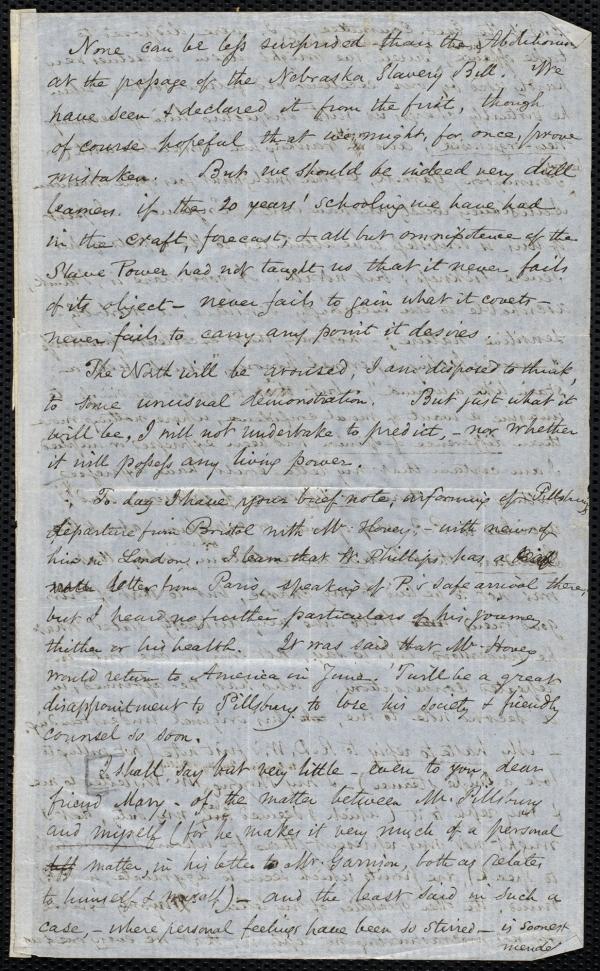 None can be less surprised than the Abolitionists
at the passage of the Nebraska Slavery Bill. We
have seen & declared it from the first, though
of course hopeful that we might, for once, prove
mistaken. But we should be indeed very dull
learners if the 20 years' schooling we have had
in the craft, forecast, & all but omnipotence of the
Slave Power had not taught us that it never fails
of its object – never fails to gain what it covets –
never fails to carry any point it desires.
The North will be aroused, I am disposed to think,
to some unusual demonstration. But just what it
will be, I will not undertake to predict, – nor whether
it will possess any living power.
To-day I have your brief note, informing of Pillsbury's
departure from Bristol with Mr. Hovey; – with news of
him in London. I learn that W. Phillips has a
letter from Paris, speaking of P.'s safe arrival there,
but I heard no further particulars of his journey
thither or his health. It was said that Mr. Hovey
would return to America in June. 'Twill be a great
disappointment to Pillsbury to lose his society & friendly
counsel so soon.
I shall say but very little – even to you, dear
friend Mary – of the matter between Mr. Pillsbury
and myself (for he makes it very much of a personal
matter, in his letter to Mr. Garrison, both as relates
to himself & myself) – and the least said in such a
case, – where personal feelings have been so stirred – is soonest
mended